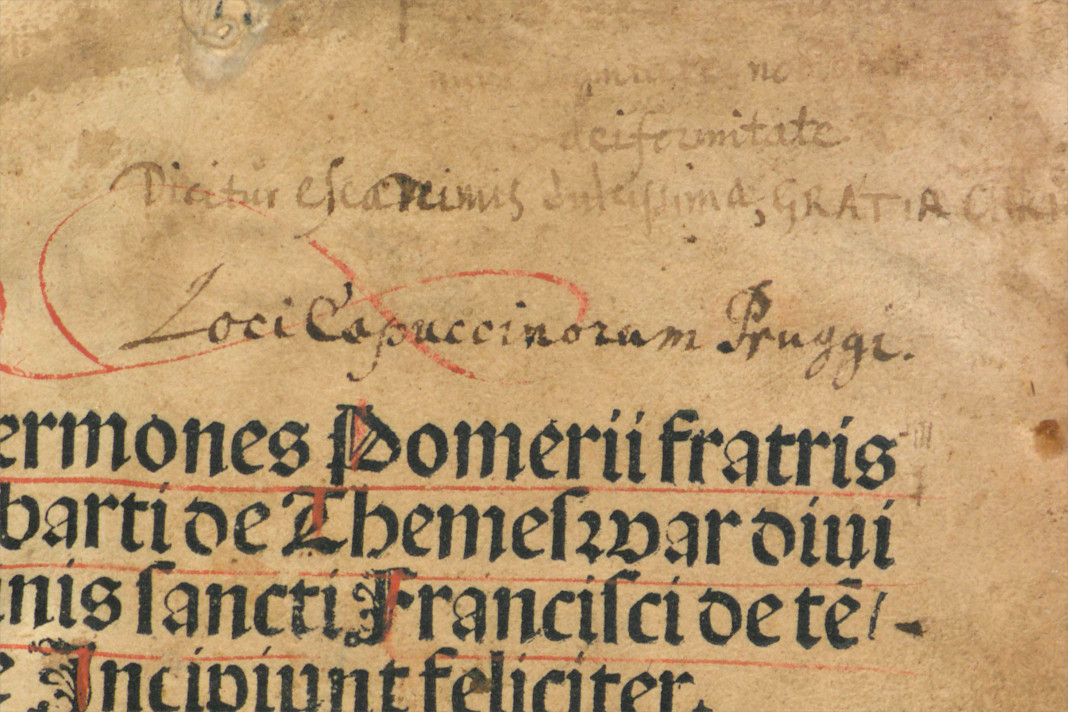 no
deiformitate
Dicitur esca animis dulcissima, GRATIA CHRI
Loci Capuccinorum Pruggi.
ermones Pomerii fratris
barti de Themeſzwar diui
inis ſancti Franciſci de tē/
e Incipiunt feliciter.